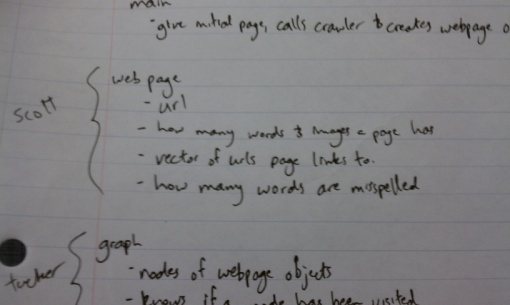 main
- give initial page, calls crawler & creates webpage o
Scott
web page
- url
- how many words & images a page has
- vector of urls page links to.
- how many words are misspelled
tucker
graph
- nodes of webpage objects
- knows if a node has been visited